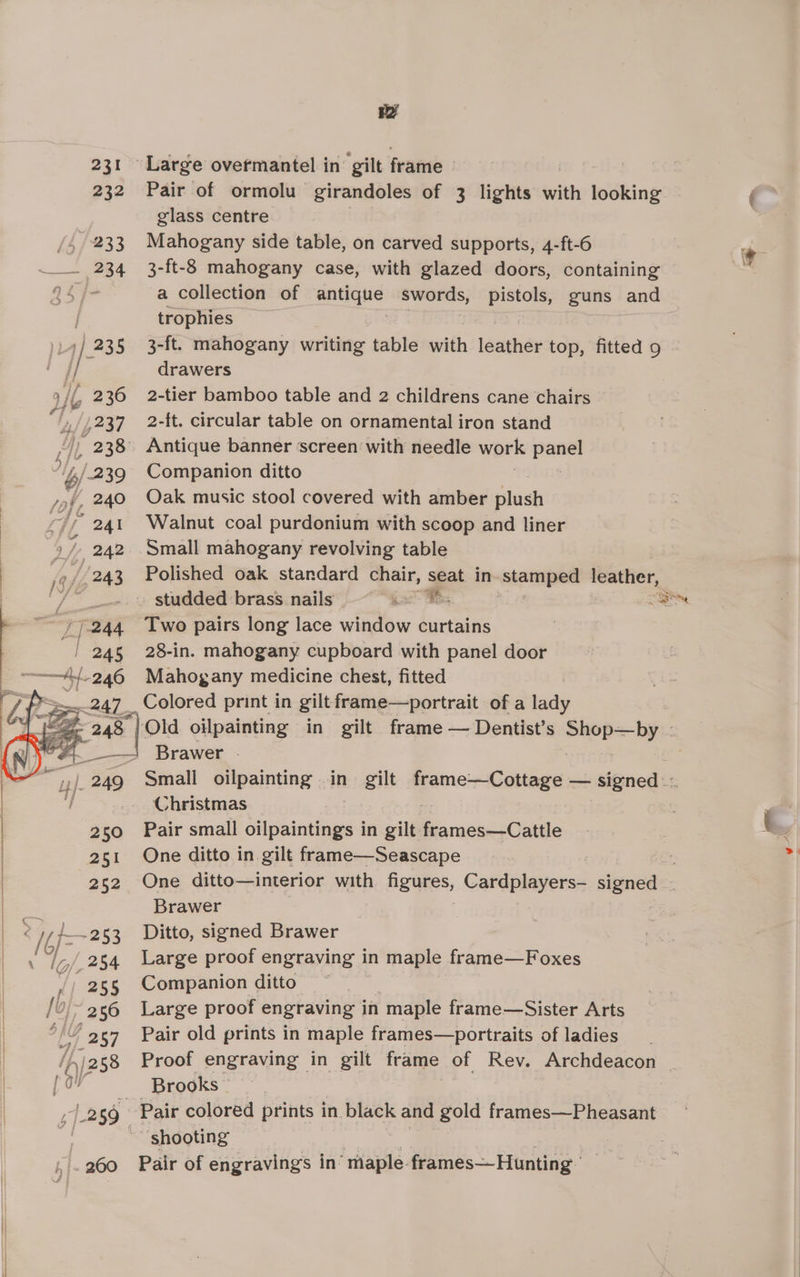 231 Large overmantel in gilt frame
232 Pair of ormolu girandoles of 3 lights with looking
glass centre
233 Mahogany side table, on carved supports, 4-ft-6
234 3-ft-8 mahogany case, with glazed doors, containing
a collection of antique swords, pistols, guns and
trophies
235 3-ft. mahogany writing table with leather top, fitted 9
drawers
236 2-tier bamboo table and 2 childrens cane chairs
237 2-ft. circular table on ornamental iron stand
238 Antique banner screen with needle work panel
239 Companion ditto
240 Oak music stool covered with amber plush
241 Walnut coal purdonium with scoop and liner
242 Small mahogany revolving table
243 Polished oak standard chair, seat in stamped leather,
studded brass nails
244 Two pairs long lace window curtains
245 28-in. mahogany cupboard with panel door
246 Mahogany medicine chest, fitted
247 Colored print in gilt frame—portrait of a lady
248 Old oilpainting in gilt frame — Dentist's Shop—by
Brawer
249 Small oilpainting in gilt frame—Cottage — signed
Christmas
250 Pair small oilpaintings in gilt frames—Cattle
251 One ditto in gilt frame—Seascape
252 One ditto—interior with figures, Cardplayers- signed
Brawer
253 Ditto, signed Brawer
254 Large proof engraving in maple frame—Foxes
255 Companion ditto
256 Large proof engraving in maple frame—Sister Arts
257 Pair old prints in maple frames—portraits of ladies
258 Proof engraving in gilt frame of Rev. Archdeacon
Brooks
259 Pair colored prints in black and gold frames—Pheasant
shooting
260 Pair of engravings in maple frames—Hunting